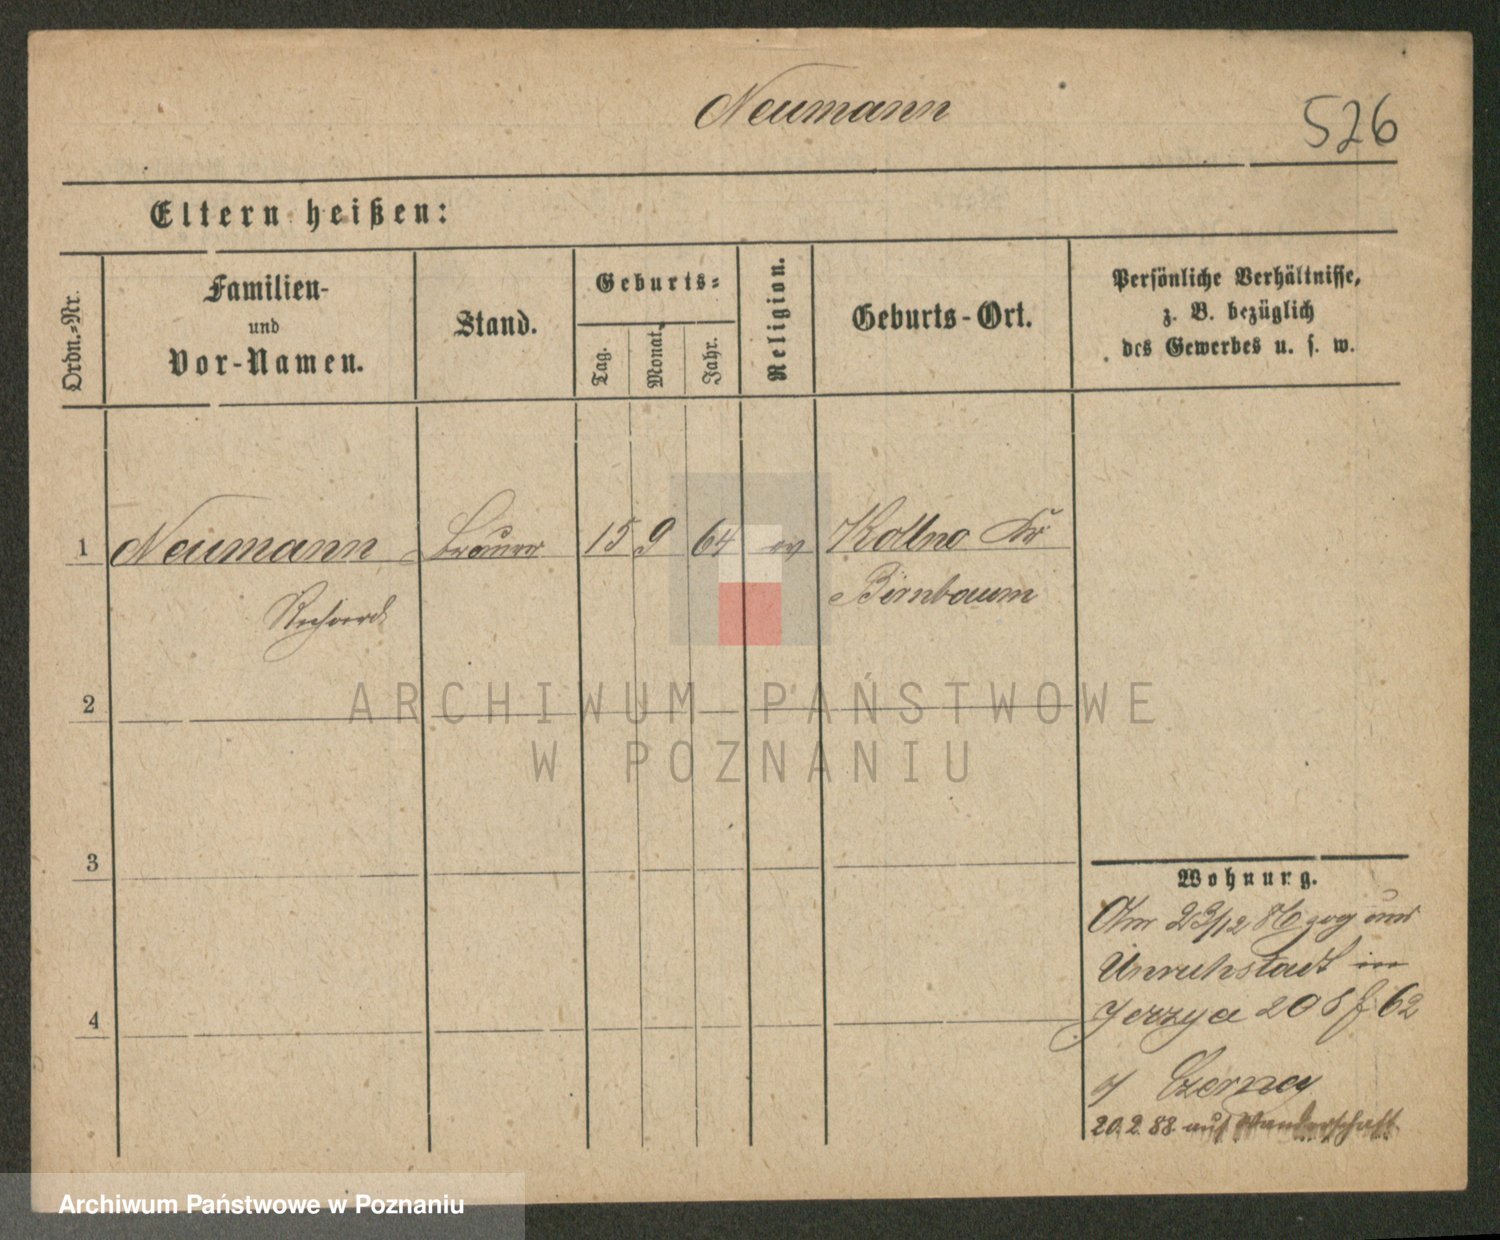 Neumann
526
Eltern heißen:
Ordn.-Nr.
Familien-
und
Vor-Namen.
Stand.
Geburts-
Tag.
Monat.
Jahr.
Religion.
Geburts-Ort.
Persönliche Verhältnisse,
z. B. bezüglich
des Gewerbes u. s. w.
1 Neumann Brauer 15 9 64 ev Kollno Kr
Richard Birnbaum
2
ARCHIWUM PAŃSTWOWE
W POZNANIU
3
4
Wohnung.
Am 23/12 86 zog aus
Unruhstadt in
Jerzyce 208 f. 62
Czerney
20.2.88 auf Wanderschaft
Archiwum Państwowe w Poznaniu